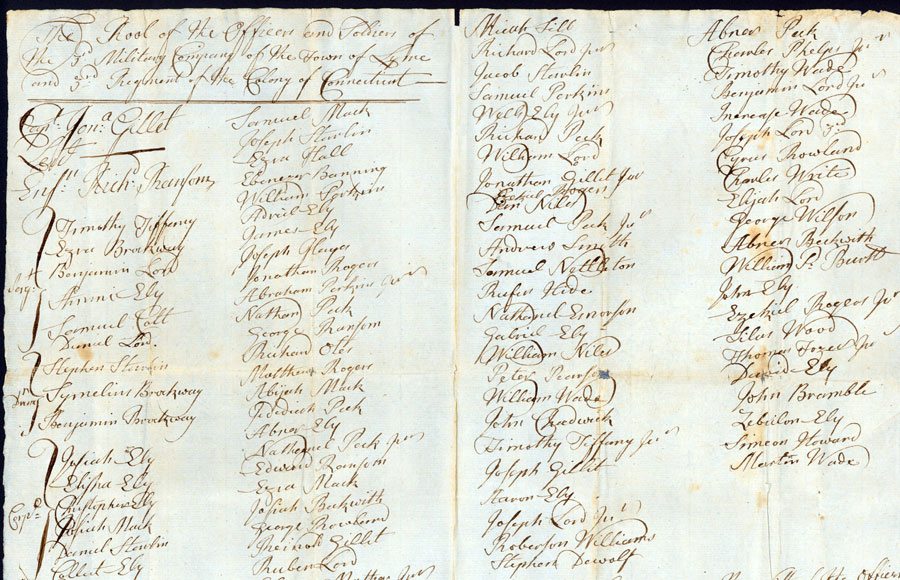 The Rool of the Officers and Soldiers of
the 3d Military Company of the Town of Lyme
and 3rd Regment of the Colony of Connecticut
Capt. Jona Gillet
Leut
Ensn. Richd Ransom
Sargts
Timothy Tiffany
Ezra Brockway
Benjamin Lord
Ammie Ely
Samuel Colt
Daniel Lord.
Stephen Starlin
Symelius Brockway
Benjamin Brockway
Corpls
Josiah Ely
Elisha Ely
Christopher Ely
Josiah Mack
Daniel Starlin
Cullick Ely
Samuel Mack
Joseph Starlin
Ezra Hall
Ebenezer Banning
William Perkins
Adriel Ely
James Ely
Joseph
Jonathan Rogers
Abraham Perkins Junr
Nathan Peck
George Ransom
Richard Otes
Matthew Rogers
Abijah Mack
Jedediah Peck
Abner Ely
Nathaniel Peck Junr
Edward Ransom
Ezra Mack
Josiah Beckwith
George
Gillet
Ruben Lord
Mather Junr
Micah Sill
Richard Lord Junr
Jacob Starlin
Samuel Perkins
Wells Ely Junr
Richard Peck
William Lord
Jonathan Gillet Junr
Ezekiel Rogers
Niles
Samuel Peck Junr
Andrew Smith
Samuel Nettleton
Rufus Hide
Nathaniel Emorson
Gabriel Ely
William Niles
Peter Pearson
William Wade
John Chadwick
Timothy Tiffany Junr
Joseph Gillet
Aaron Ely
Joseph Lord Junr
Roberson Williams
Stephen Dewolf
Abner Peck
Charles Phelps Junr
Timothy Wade
Benjamin Lord Junr
Increase Wade
Joseph Lord 3d
Cyrus Rowland
Charles Write
Elijah Lord
George Wilson
Abner Beckwith
William Pr Burtt
John Ely
Ezekiel Rogers Junr
Silas Wood
Thomas Junr
David Ely
John Bramble
Zebulon Ely
Simeon Howard
Martin Wade
Officers